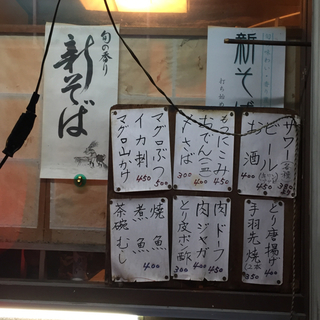 旬の香り
新そば
新そば
打ち始め
サワー 各種 350
ビール
お酒 400
もつにこみ 450
おでん(五) 450
〆さば 300
マグロぶつ 500
イカ刺 450
マグロ山かけ
とり唐揚げ 400
手羽先焼 2本 350
肉ドーフ
肉ジャガ 400
とり皮ポン酢 300
焼魚
煮魚
茶碗むし 400